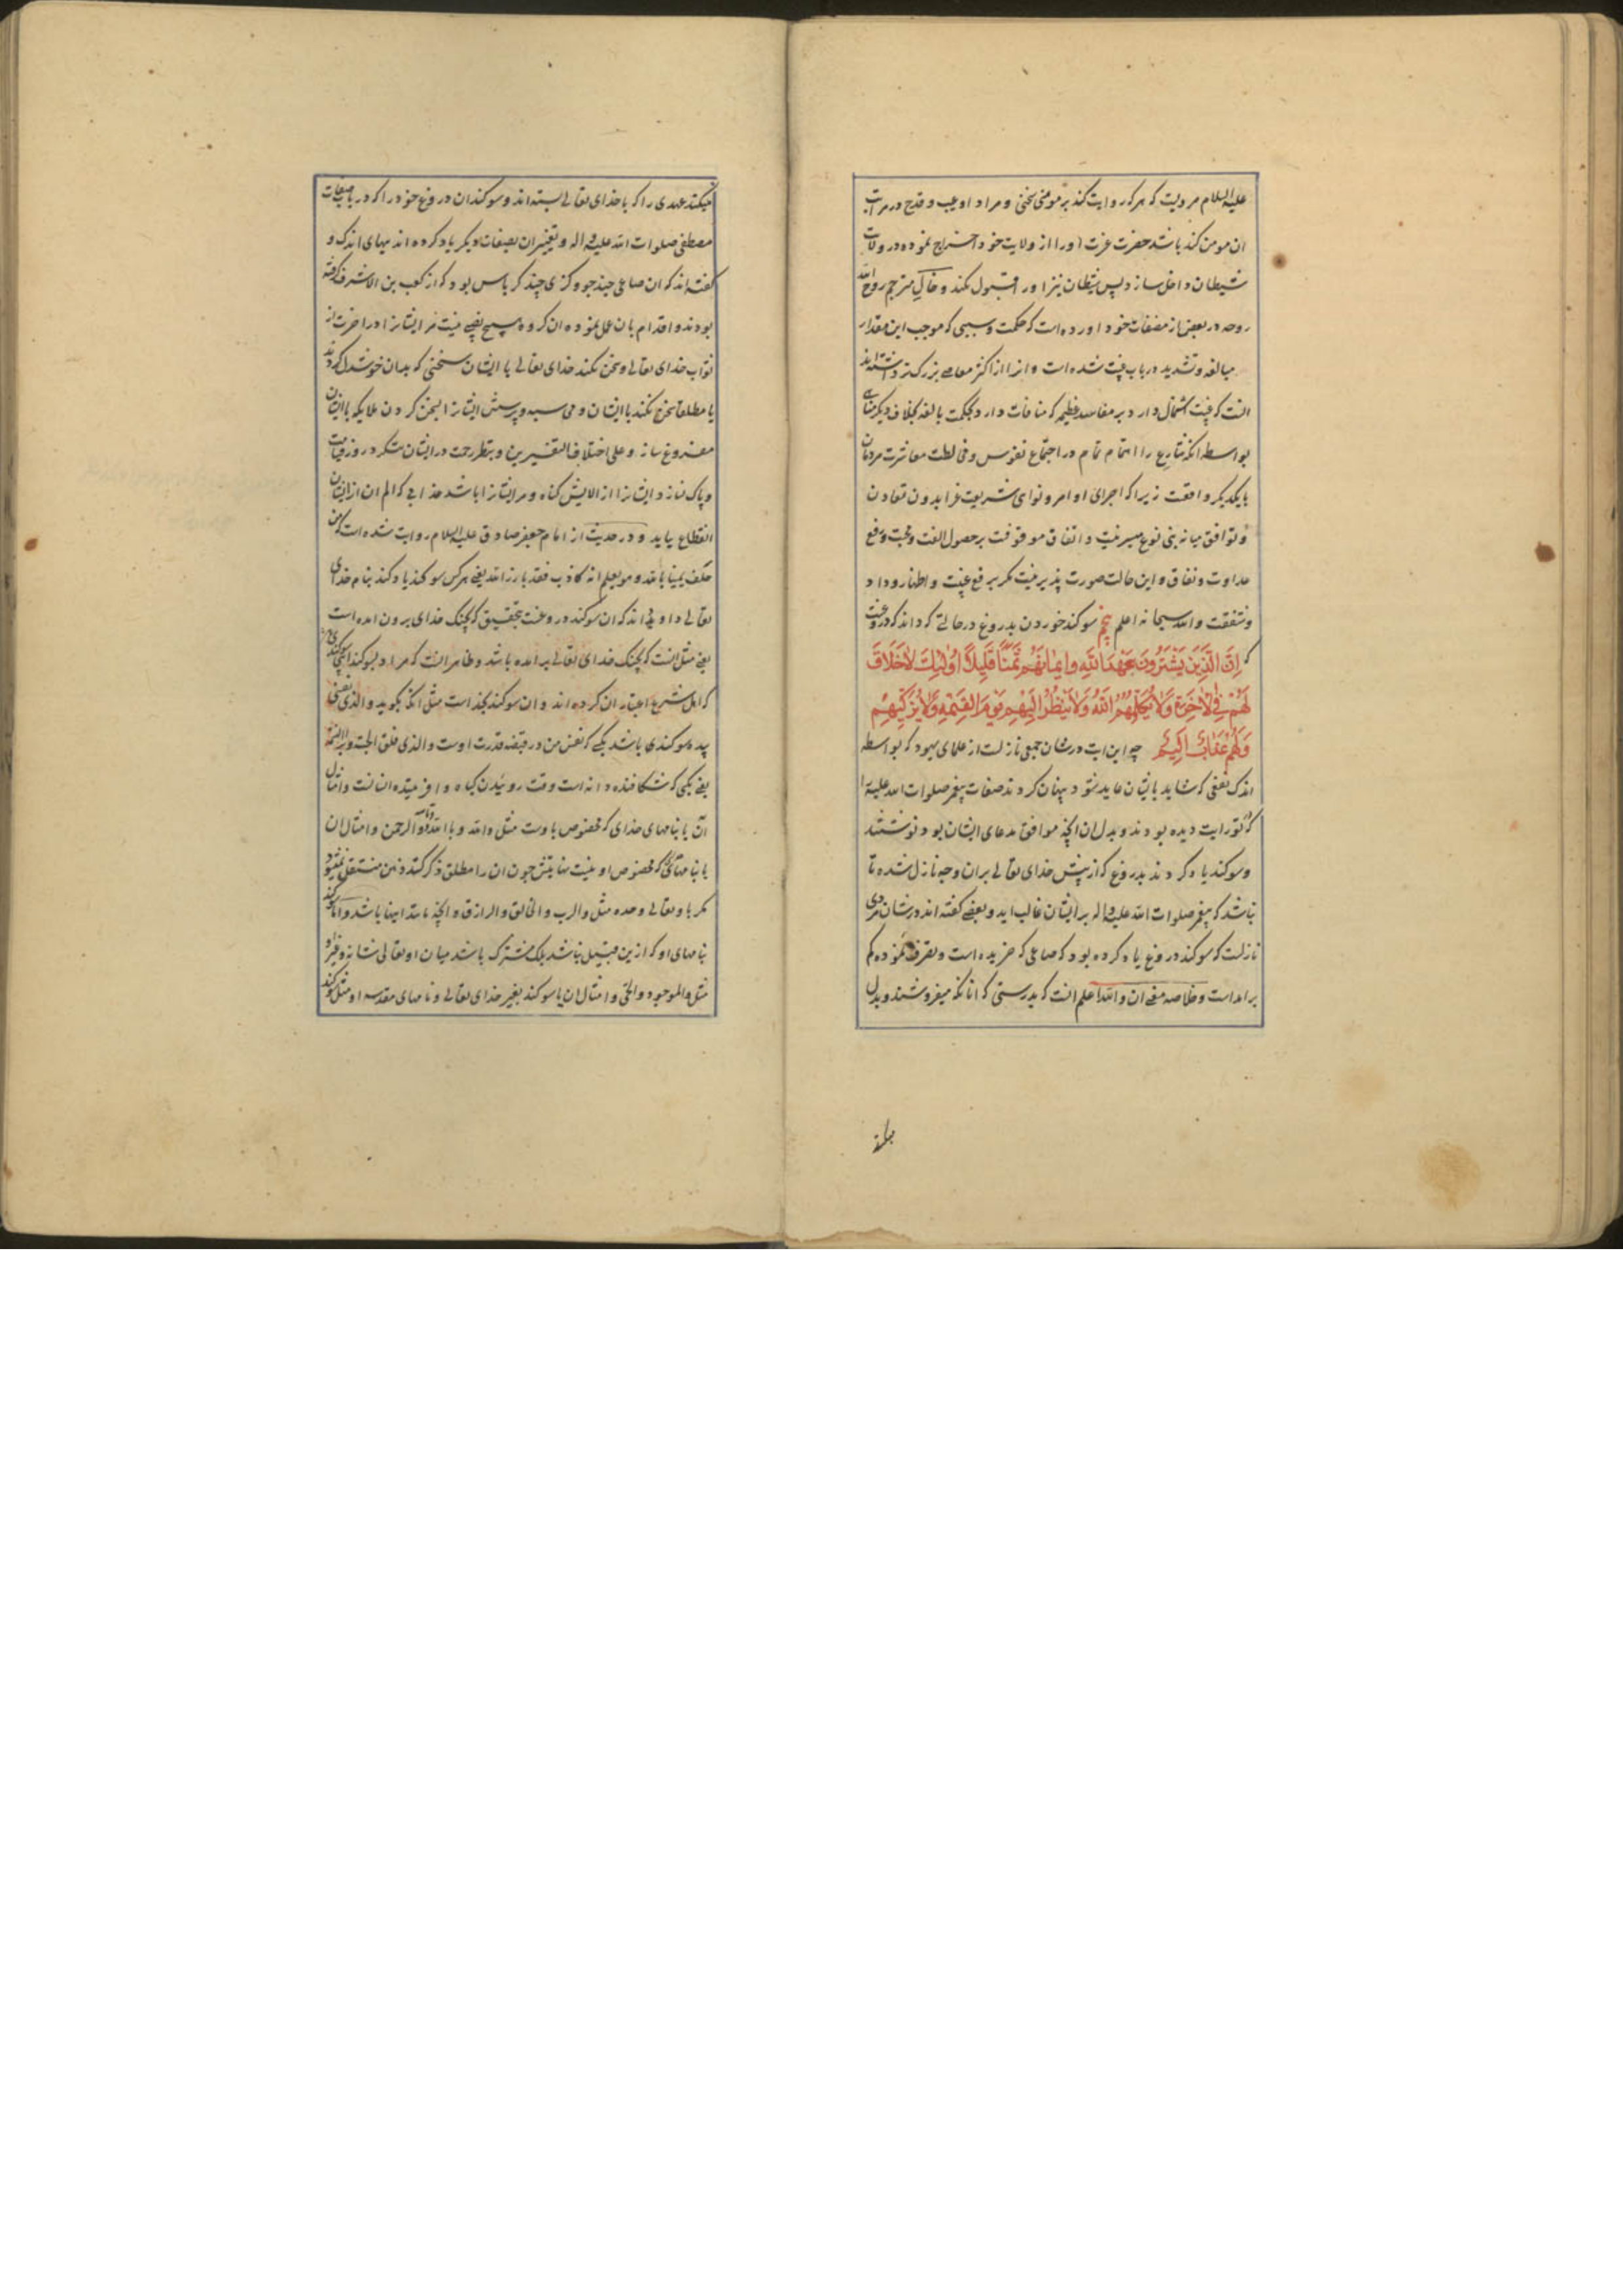 علیه السلام مرویست که هر که روایت کند بر مومنی سخنی و مراد او عیب و قدح در مراتب
ان مومن کند باشد حضرت عزت او را از ولایت خود اخراج نموده در ولایت
شیطان داخل سازد پس شیطان نیز او را قبول نکند و خاک مترجم روح الله
روحه در بعض از مصنفات خود اورده است که حکمت و سببی که موجب این مقدار
مبالغه و تشدید در باب غیبت شده است و انرا از اکثر معاصی بزرگتر داشته اند
انست که غیبت اشتمال دارد بر مفاسد عظیم که منافات دارد بحکمت بالغه بخلاف دیگر مناهی
بواسطه انکه شارع را اهتمام تمام در اجتماع نفوس و مخالطت معاشرت مردمان
با یکدیگر واقعست زیرا که اجرای اوامر و نواهی شریعت غرا بدون تعاون
و توافق میانه بنی نوع میسر نیست و اتفاق موقوفست بر حصول الفت و محبت و رفع
عداوت و نفاق و این حالت صورت پذیر نیست مگر برفع غیبت و اظهار وداد
و شفقت والله سبحانه اعلم پنجم سوکند خوردن بدروغ در حالتی که داند که دروغست
که اِنَّ الَّذِینَ یَشْتَرُونَ بِعَهْدِ اللهِ وَایمَانِهِمْ ثَمَنًا قَلِیلًا اُولٰئِکَ لَا خَلَاقَ
لَهُمْ فِی الْاٰخِرَةِ وَلَا یُکَلِّمُهُمُ اللهُ وَلَا یَنْظُرُ اِلَیْهِمْ یَوْمَ الْقِیٰمَةِ وَلَا یُزَکِّیهِمْ
وَلَهُمْ عَذَابٌ اَلِیمٌ چه این ایت در شان جمعی نازلست از علمای یهود که بواسطه
اندک نفعی که شاید بایشان عاید شود پنهان کردند صفات پیغمبر صلوات الله علیه را
که در تورایت دیده بودند و بدل ان انچه موافق مدعای ایشان بود نوشتند
و سوکند یاد کردند بدروغ که از پیش خدای تعالی بر ان وجه نازل شده تا
نباشد که پیغمبر صلوات الله علیه واله بر ایشان غالب اید و بعضی کفته اند در شان مردی
نازلست که سوکند دروغ یاد کرده بود که صاعی که خریده است و تصرف نموده کم
بر امد است و خلاصه معنی ان والله اعلم انست که بدرستی که انانکه میفروشند و بدل
میکنند عهدی را که با خدای تعالی بسته اند و سوکندان دروغ خود را که در باب صفات
مصطفی صلوات الله علیه واله و تغییر ان بصفات دیگر یاد کرده اند ببهای اندک و
کفته اند که ان صاعی چند جو و کزی چند کرباس بود که از کعب بن الاشرف کرفته
بودند و اقدام بان عمل نموده ان کروه هیچ نصیبی نیست مر ایشانرا در اخرت از
ثواب خدای تعالی و سخن نکند خدای تعالی با ایشان سخنی که بدان خوشدل کردند
یا مطلقا سخن نکند با ایشان و محاسبه و پرسش ایشانرا بسخن کردن ملایکه با ایشان
مفروغ سازد و علی اختلاف التفسیرین و بنظر رحمت در ایشان ننکرد در روز قیامت
و پاک نسازد ایشانرا از الایش کناه و مر ایشانرا باشد عذابی که الم ان از ایشان
انقطاع نیابد و در حدیث از امام جعفر صادق علیه السلام روایت شده است که من
حلف یمینا بالله و هو یعلم انه کاذب فقد بارز الله یعنی هر کس سوکند یاد کند بنام خدای
تعالی و او داند که ان سوکند دروغست بتحقیق که بجنک خدای برون امده است
یعنی مثل انست که بجنک خدای تعالی برامده باشد و ظاهر انست که مراد بسوکند اینجا سوکندیست
که اهل شرع اعتبار ان کرده اند و ان سوکند بخداست مثل انکه بکوید والذی نفسی
بیده سوکندی باشد بکسی که نفس من در قبضه قدرت اوست والذی فلق الحبة و برا النسمة
یعنی بکسی که شکافنده دانه است وقت روییدن کیاه و افریننده انسانست و امثال
ان یا بنامهای خدای که مخصوص باوست مثل والله و بالله و تالله والرحمن و امثال ان
یا بنامهائی که مخصوص او نیست اما بیش چون ان را مطلق ذکر کنند ذهن منتقل نمیشود
مکر باو تعالی وحده مثل والرب والخالق والرازق و انچه مانند اینها باشد و اما سوکند
بنامهای او که ازین قبیل نباشد بلکه مشترک باشد میان او تعالی شانه و غیر او
مثل والموجود والحی و امثال ان یا سوکند بغیر خدای تعالی و نامهای مقدسه او مثل سوکند